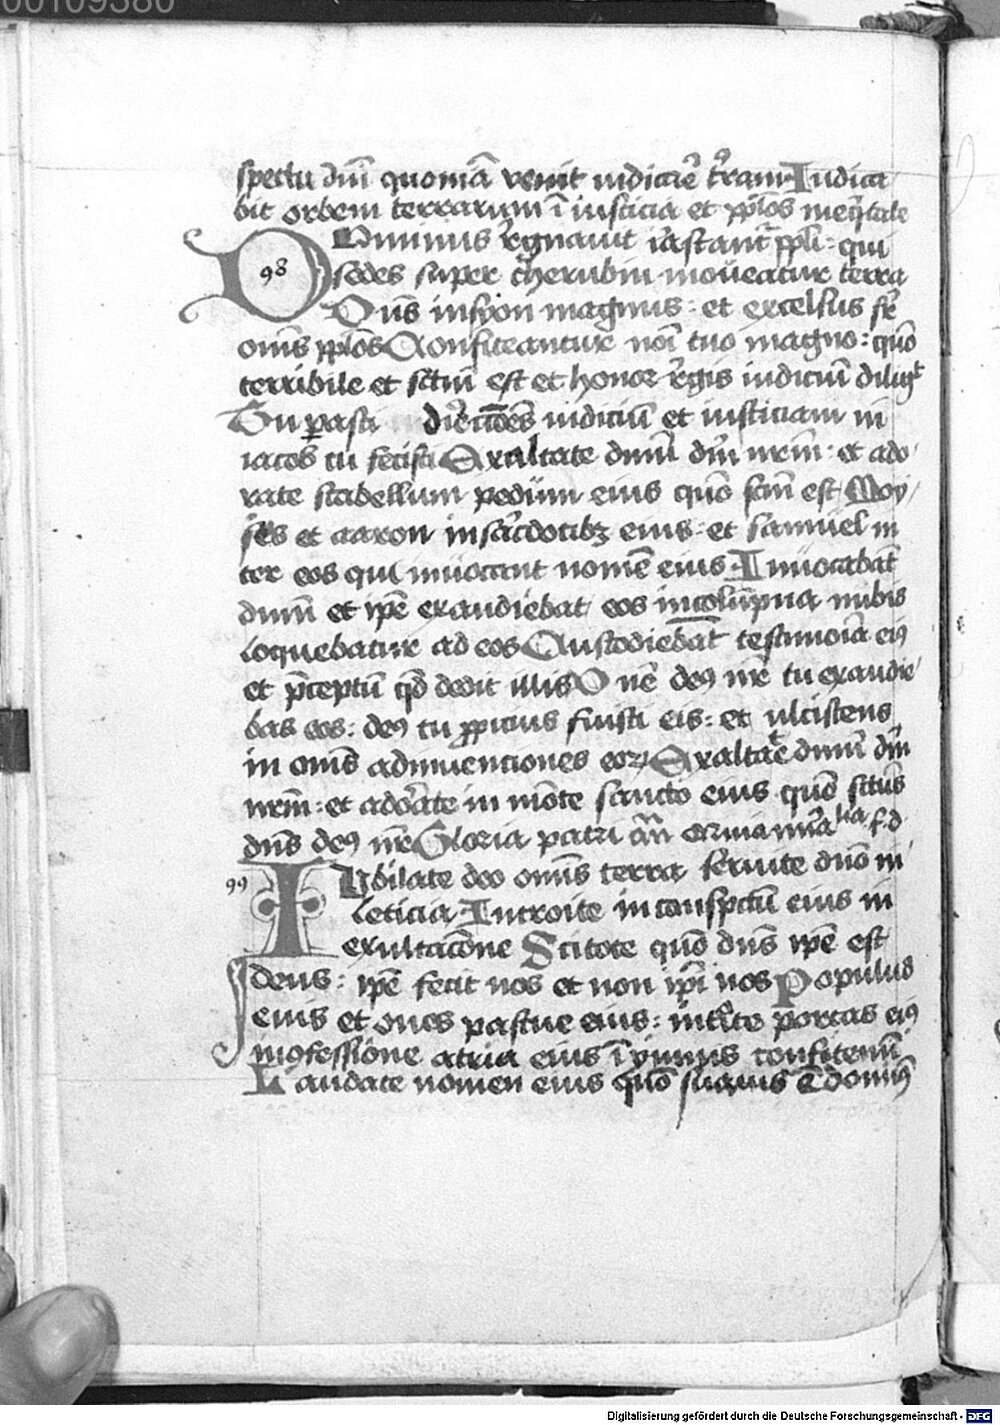 00109380
spectu dn̄i quoniā venit iudicar̄e tr̄ram Iudica
bit orbem terrarum ī iusticia et pp̄los ineq̄tate
98
Dominus r̄gnauit irascant̄ ppl̄i : qui
sedes super cherubin moueatur terra
Dn̄s in syon magnus : et excelsus sr̄
om̄s pp̄los Confiteantur noī tuo magno : quō
terribile et sctm̄ est et honor r̄gis iudiciū diligt
Tu parasti dir̄ectōes iudiciū et iusticiam in
iacob tu fecisti Exaltate dnm̄ dm̄ nrm̄ : et ado
rate scabellum pedum eius quō scm̄ est Moy
ses et aaron in sac̄dotibꝫ eius : et samuel in
ter eos qui inuocant nomē eius Inuocabāt
dnm̄ et ipē exaudiebat eos in colūpna nubis
loquebatur ad eos Custodiebāt testimoīa eiꝰ
et p̄ceptū qd̄ dedit illis Dnē deꝰ nr̄ tu exaudie
bas eos : deꝰ tu ꝓpicius fuisti eis : et ulciscens
in om̄s adinuentiones eoꝝ Exaltate dnm̄ dm̄
nrm̄ : et ador̄ate in mōte sancto eius quō sctus̄
dn̄s deꝰ nr̄ Gloria patri
99
IUbilate deo om̄is terra seruite dnō in
leticia Introite in conspctū eius in
exultacōne Scitote quō dn̄s ipē est
deus : ipē fecit nos et non ip̄i nos Populus
eius et oues pascue eius : intr̄te portas eiꝰ
in ꝯfessione atria eius ī ymnis confitemī
Laudate nomen eius quō suauis ē dominꝰ
Digitalisierung gefördert durch die Deutsche Forschungsgemeinschaft - DFG